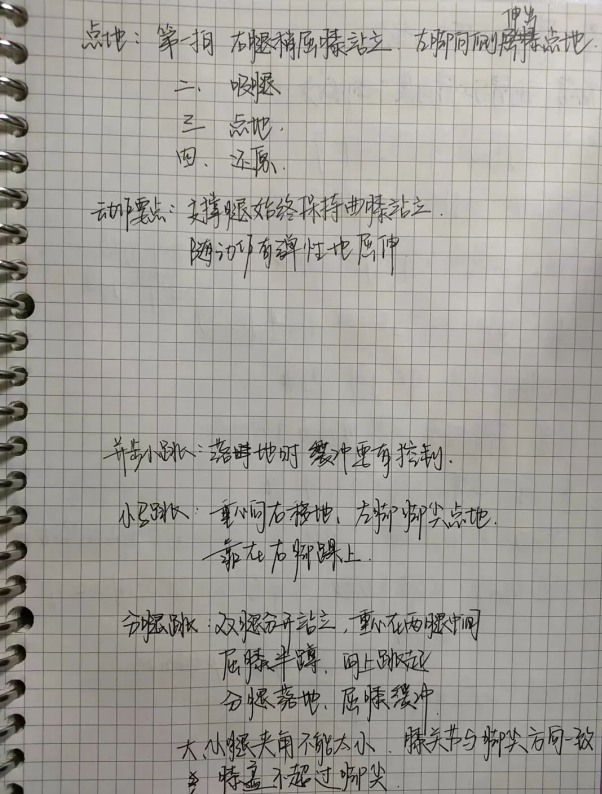 点地：第一拍 右腿稍屈膝站立，左脚向侧伸膝点地.
二、吸腿
三 点地.
四、还原.
动作要点：支撑腿始终保持曲膝站立.
随动作有弹性地屈伸
并步小跳：落地时 缓冲要有控制.
小马跳：重心向右移地，左脚脚尖点地.
靠在右脚踝上.
分腿跳：双腿分开站立，重心在两腿中间
屈膝半蹲，向上跳起
分腿落地，屈膝缓冲.
大、小腿夹角不能太小，膝关节与脚尖方向一致
膝盖不超过脚尖.